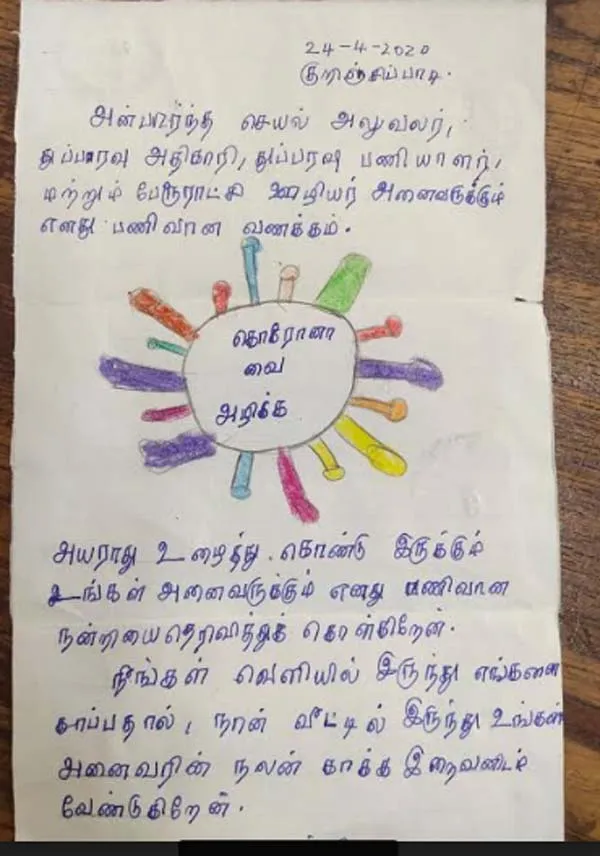 24-4-2020
குறிஞ்சிப்பாடி.
அன்பார்ந்த செயல் அலுவலர்,
துப்பரவு அதிகாரி, துப்பரவு பணியாளர்,
மற்றும் பேரூராட்சி ஊழியர் அனைவருக்கும்
எனது பணிவான வணக்கம்.
கொரோனா
வை
அழிக்க
அயராது உழைத்து கொண்டு இருக்கும்
உங்கள் அனைவருக்கும் எனது பணிவான
நன்றியை தெரிவித்துக் கொள்கிறேன்.
நீங்கள் வெளியில் இருந்து எங்களை
காப்பதால், நான் வீட்டில் இருந்து உங்கள்
அனைவரின் நலன் காக்க இறைவனிடம்
வேண்டுகிறேன்.